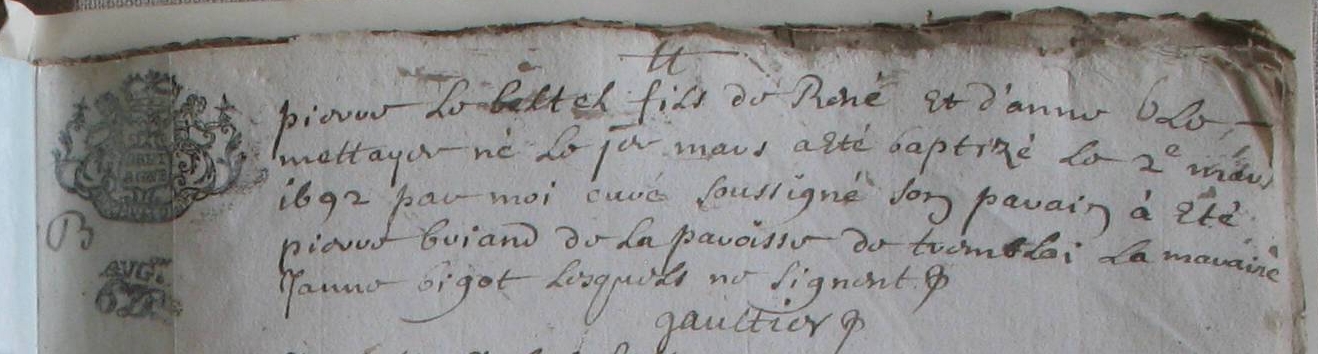 tt
pierre Le beltel fils de René Et d'anne Le
mettayer né Le jer mars a Eté baptizé Le 2e mars
1692 par moi curé soussigné son parain á Eté
pierre briand de La paroisse de trembloi La maraine
Janne bigot Lesquels ne signent
gaultier
B